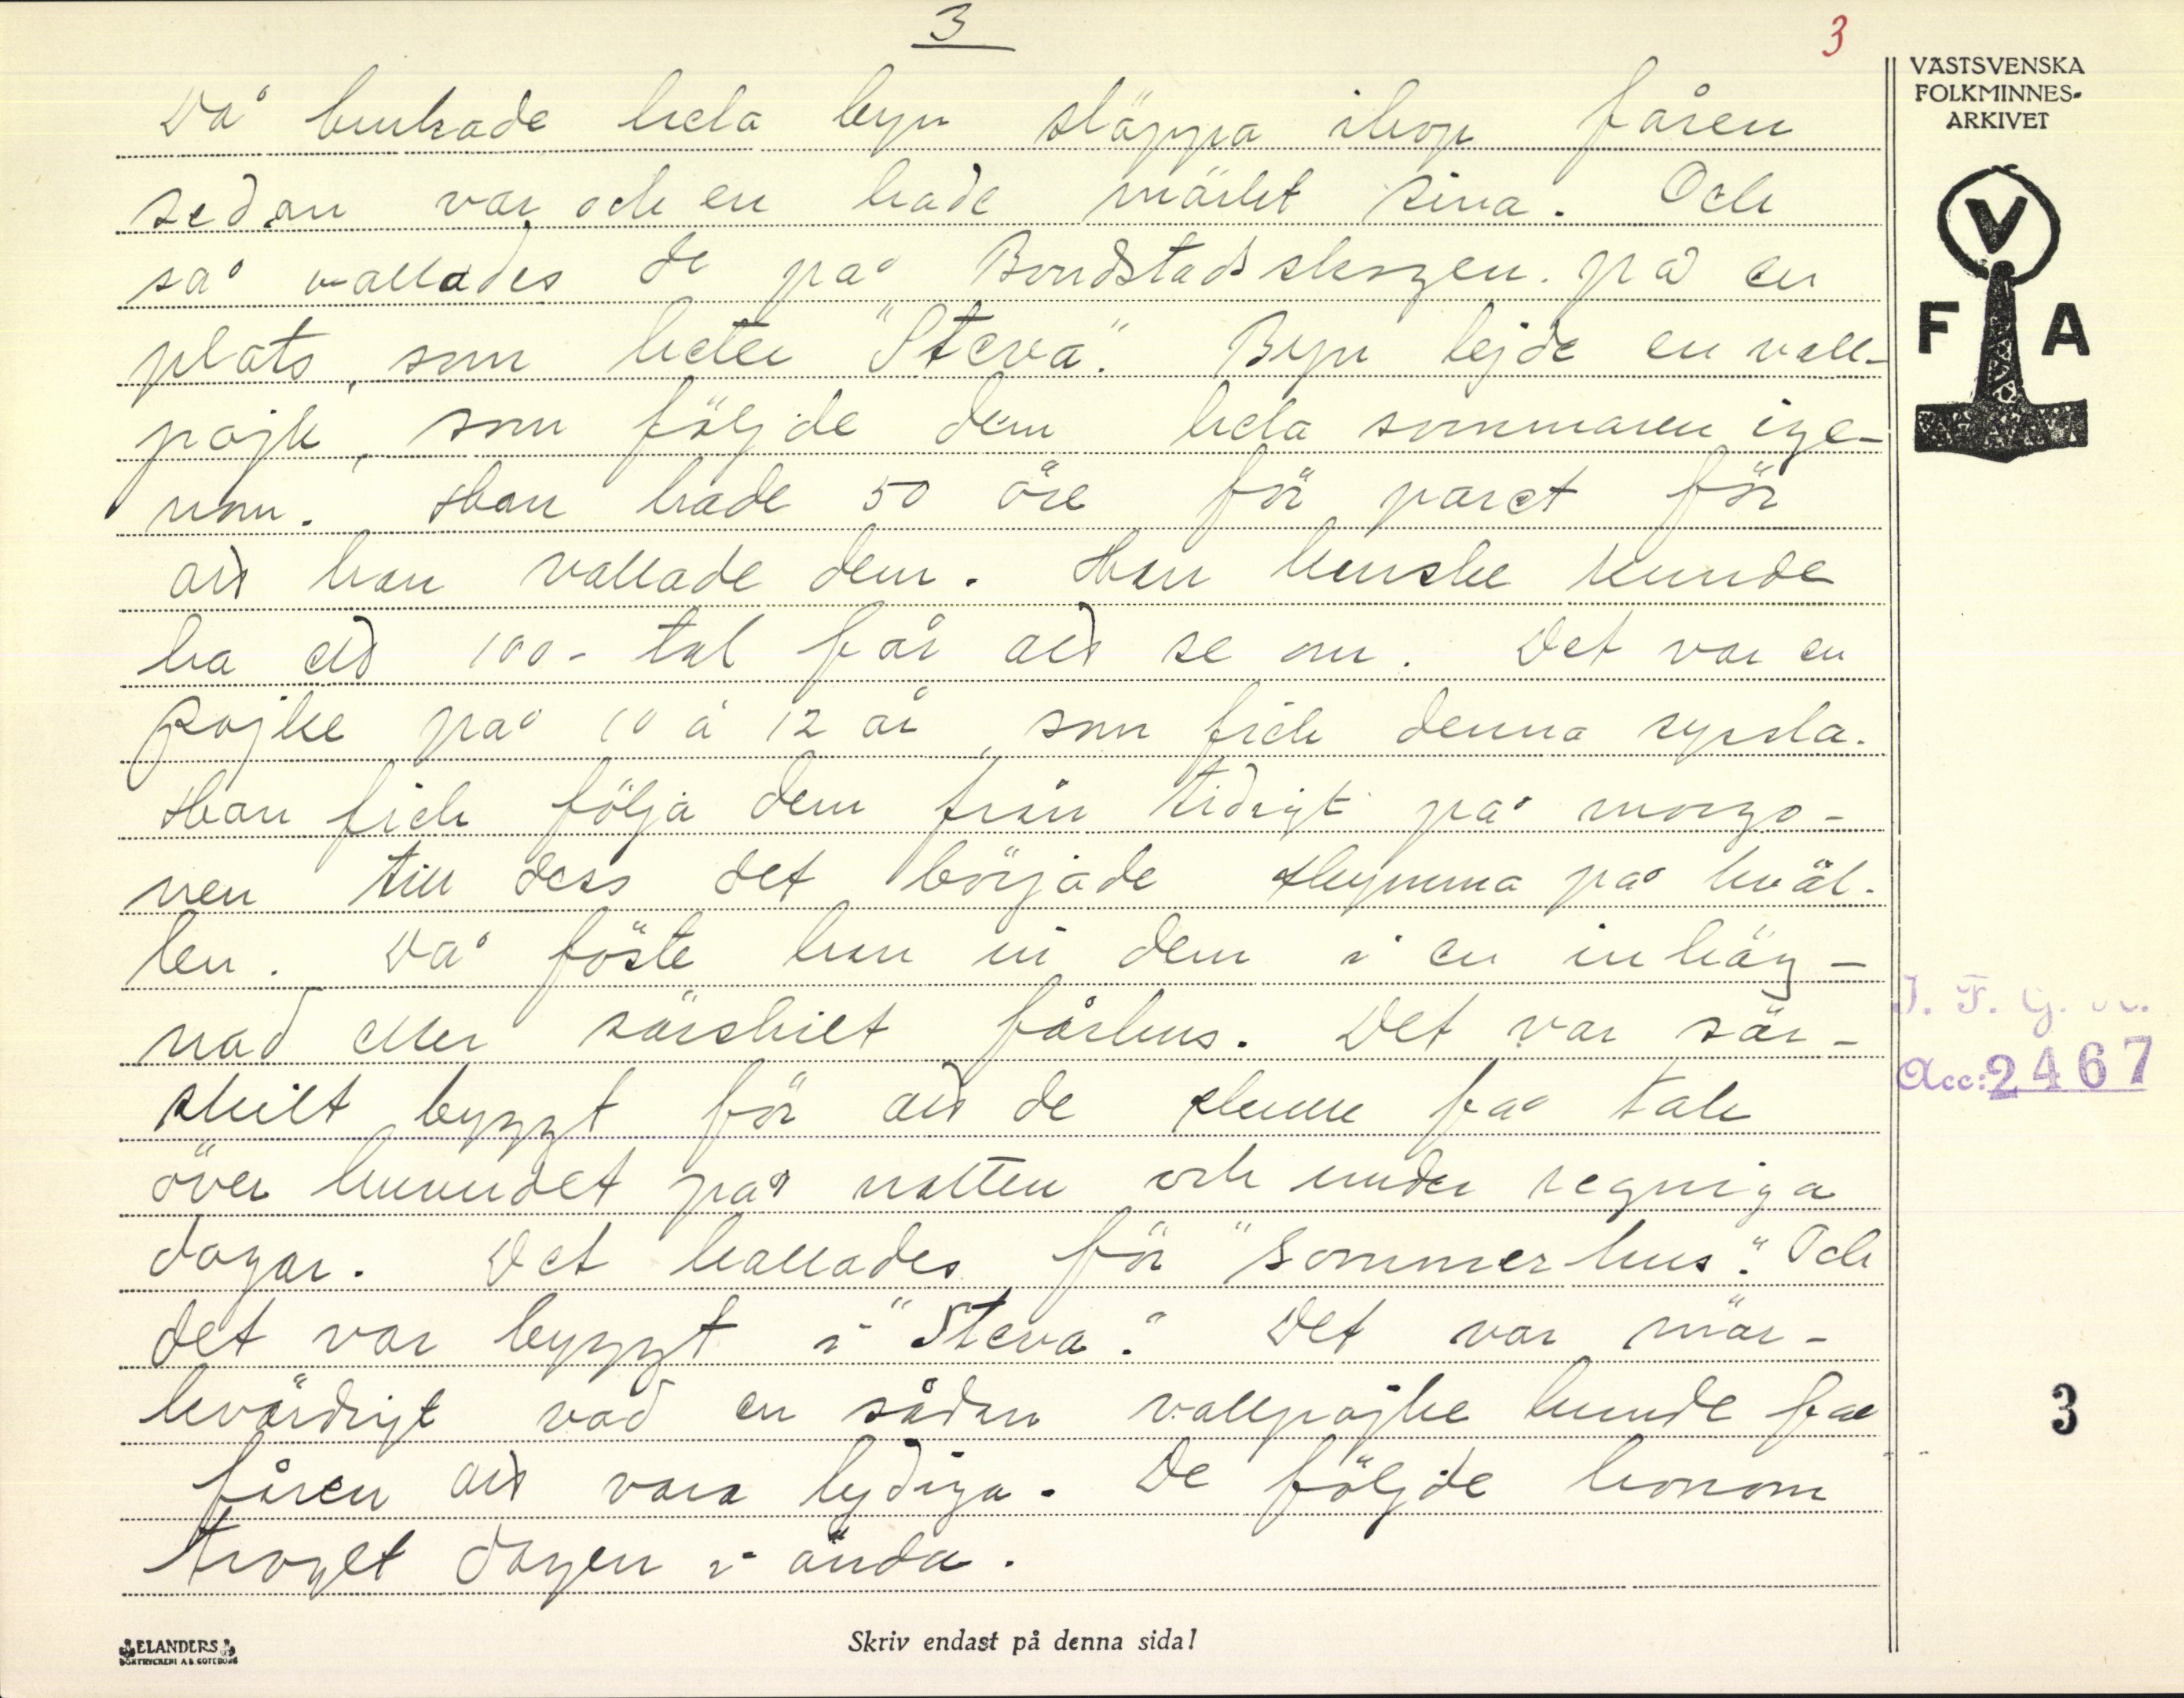 3
3
Då brukade hela byn släppa ihop fåren
sedan var och en hade märkt sina. Och
så vallades de på Bondstadsskogen. på en
plats, som heter "Steva". Byn lejde en vall-
pojk, som följde dem hela sommaren ige-
nom. Han hade 50 öre för paret för
att han vallade dem. Han kanske kunde
ha ett 100-tal får att se om. Det var en
Pojke på 10 à 12 år, som fick denna syssla.
Han fick följa dem från tidigt på morgo-
nen till dess det började skymma på kväl-
len. Då föste han in dem i en inhäg-
nad eller särskilt fårhus. Det var sär-
skilt byggt för att de skulle få tak
över huvudet på natten och under regniga
dagar. Det kallades för "sommerhus". Och
det var byggt i "Steva". Det var mär-
kvärdigt vad en sådan vallpojke kunde få
fåren att vara lydiga. De följde honom
troget dagen i ända.
VÄSTSVENSKA
FOLKMINNES-
ARKIVET
V
F A
Acc: 2467
3
ELANDERS
BOKTRYCKERI A.B. GÖTEBORG
Skriv endast på denna sida!